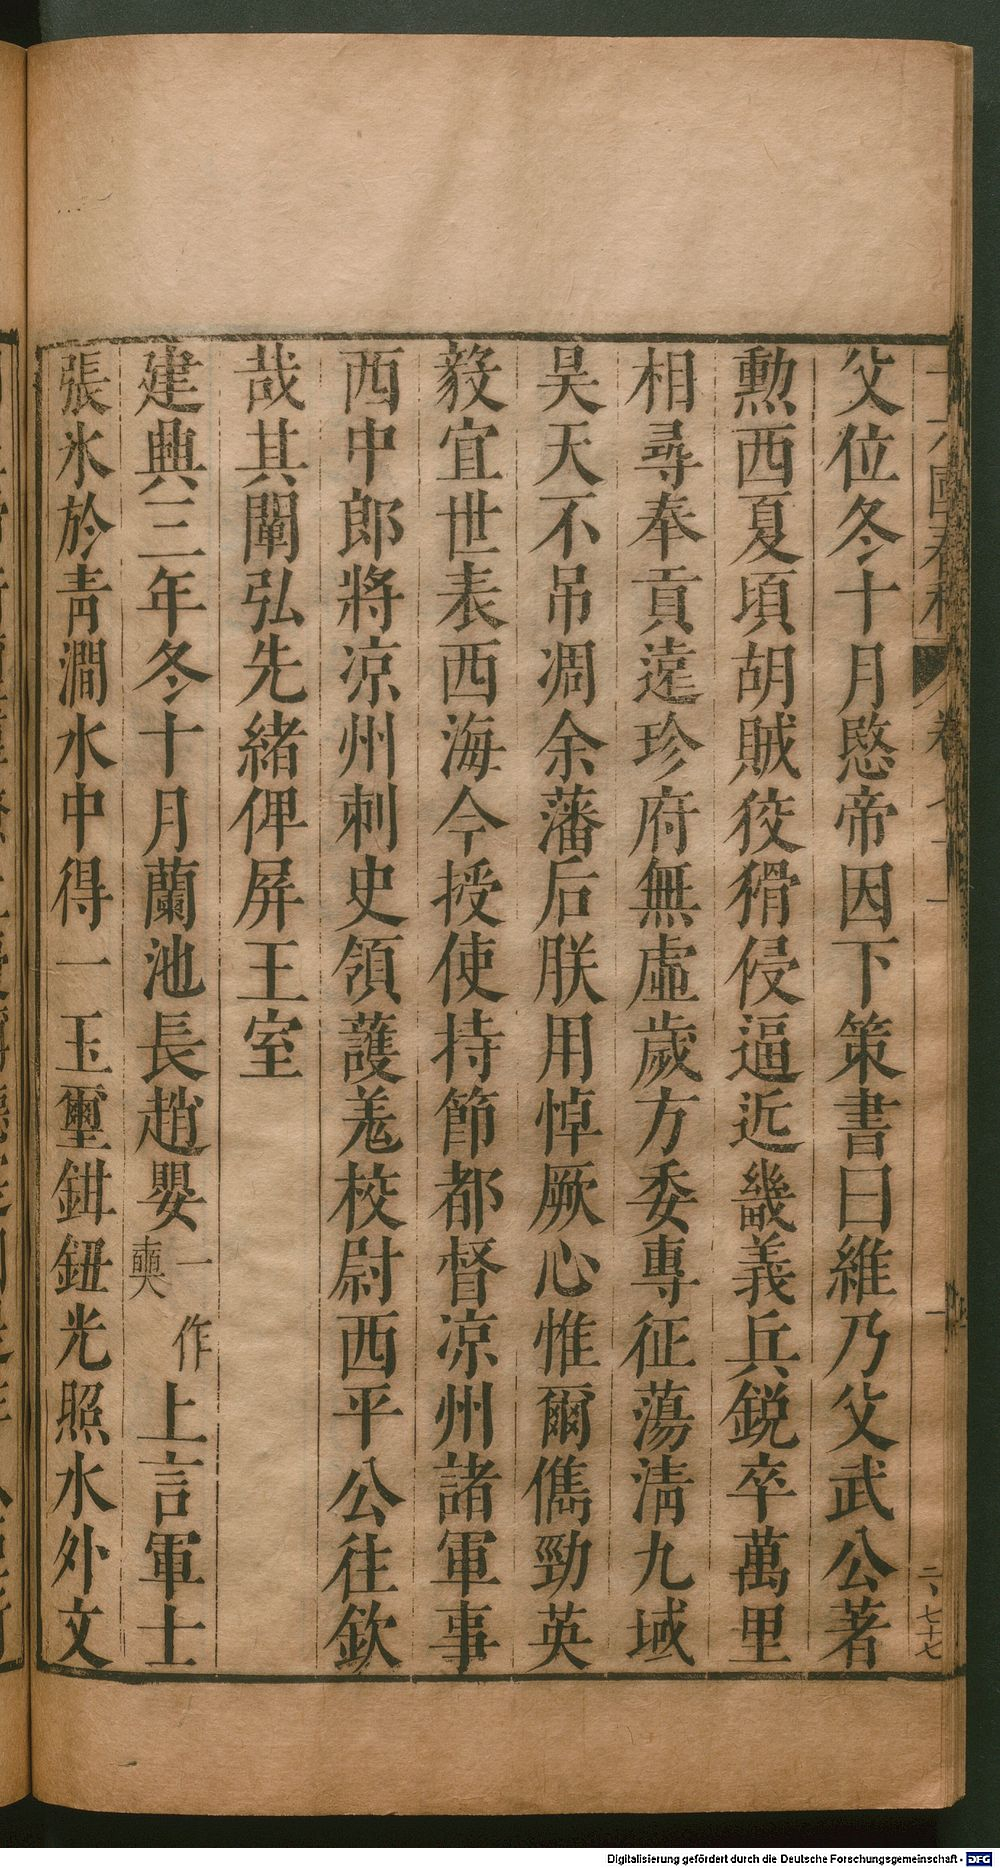 父位冬十月愍帝因下策書曰維乃父武公著
勲西夏頃胡賊狡猾侵逼近畿義兵鋭卒萬里
相尋奉貢遠珍府無虛歲方委專征蕩清九域
昊天不吊凋余藩后朕用悼厥心惟爾儁勁英
毅宜世表西海今授使持節都督凉州諸軍事
西中郎將凉州刺史領護羗校尉西平公往欽
哉其闡弘先緒俾屏王室
建興三年冬十月蘭池長趙嬰一作奭上言軍士
張氷於青澗水中得一玉璽鉗鈕光照水外文
二、七十七
Digitalisierung gefördert durch die Deutsche Forschungsgemeinschaft - DFG